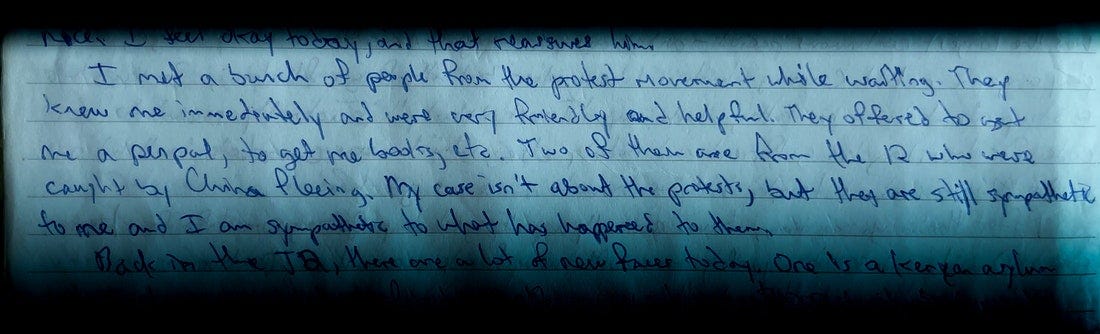 nice. I feel okay today, and that reassures him.
I met a bunch of people from the protest movement while waiting. They
knew me immediately and were very friendly and helpful. They offered to get
me a penpal, to get me books, etc. Two of them are from the 12 who were
caught by China fleeing. My case isn't about the protests, but they are still sympathetic
to me and I am sympathetic to what has happened to them.
Back in the TB, there are a lot of new faces today. One is a Kenyan asylum